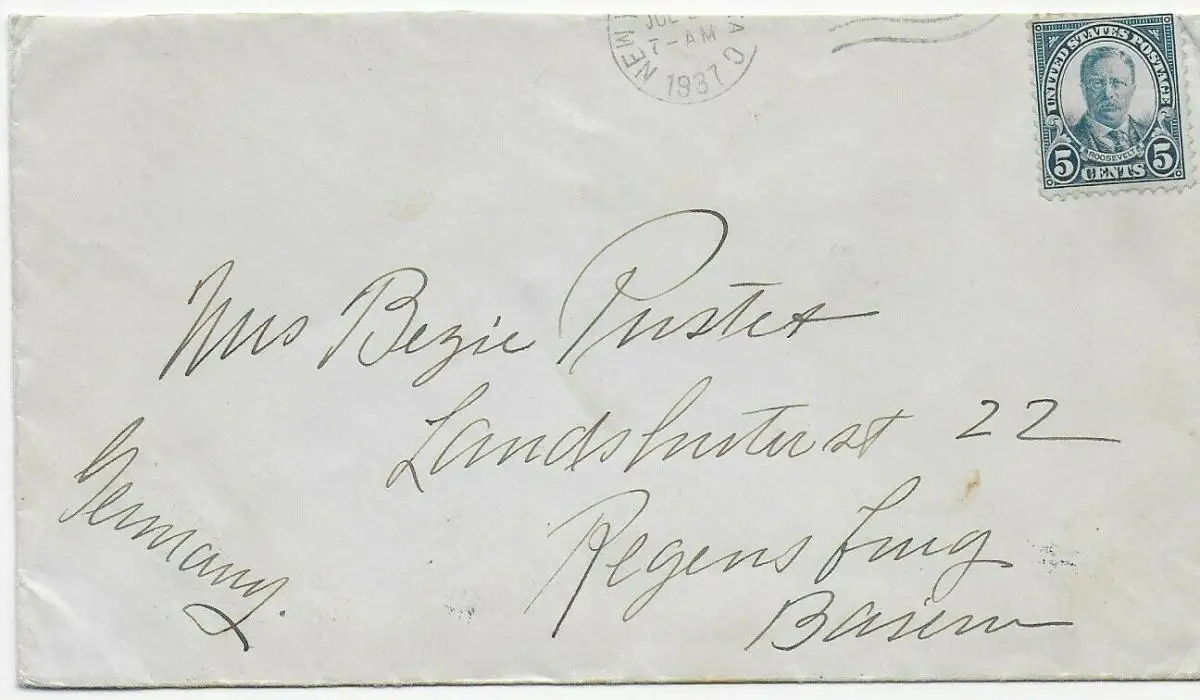 JUL
7-AM
1937
NEW
UNITED STATES POSTAGE
ROOSEVELT
5 CENTS 5
Mrs Bezie Pustet
Landshuterst 22
Germany.
Regensburg
Baiern